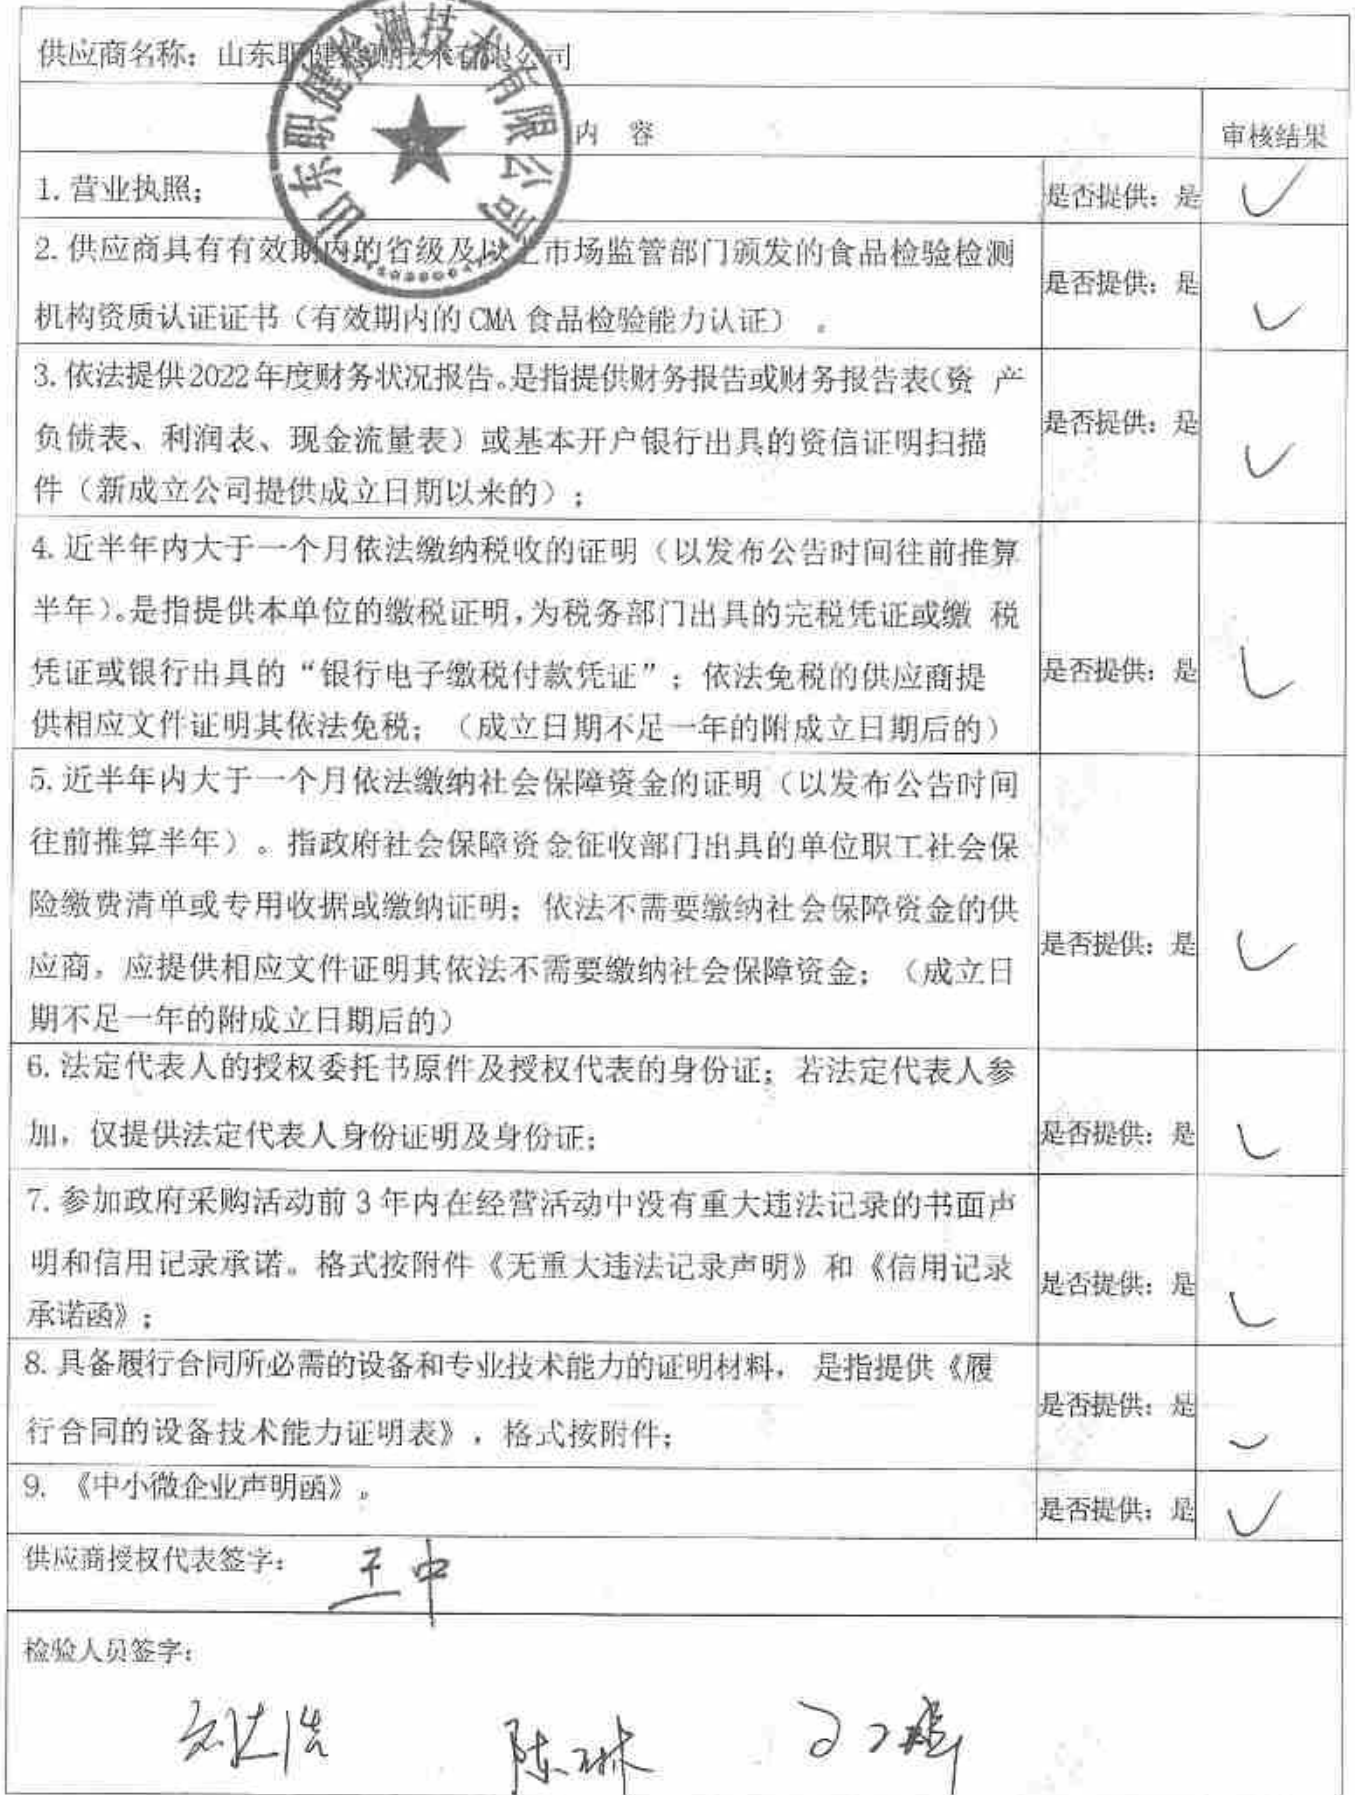 供应商名称：山东职健检测技术有限公司
山东职健检测技术有限公司
内 容
审核结果
1. 营业执照；
是否提供：是
2. 供应商具有有效期内的省级及以上市场监管部门颁发的食品检验检测
机构资质认证证书（有效期内的 CMA 食品检验能力认证）。
是否提供：是
3. 依法提供2022年度财务状况报告。是指提供财务报告或财务报告表（资 产
负债表、利润表、现金流量表）或基本开户银行出具的资信证明扫描
件（新成立公司提供成立日期以来的）；
是否提供：是
4. 近半年内大于一个月依法缴纳税收的证明（以发布公告时间往前推算
半年）。是指提供本单位的缴税证明，为税务部门出具的完税凭证或缴 税
凭证或银行出具的“银行电子缴税付款凭证”；依法免税的供应商提
供相应文件证明其依法免税；（成立日期不足一年的附成立日期后的）
是否提供：是
5. 近半年内大于一个月依法缴纳社会保障资金的证明（以发布公告时间
往前推算半年）。指政府社会保障资金征收部门出具的单位职工社会保
险缴费清单或专用收据或缴纳证明；依法不需要缴纳社会保障资金的供
应商，应提供相应文件证明其依法不需要缴纳社会保障资金；（成立日
期不足一年的附成立日期后的）
是否提供：是
6. 法定代表人的授权委托书原件及授权代表的身份证；若法定代表人参
加，仅提供法定代表人身份证明及身份证；
是否提供：是
7. 参加政府采购活动前 3 年内在经营活动中没有重大违法记录的书面声
明和信用记录承诺。格式按附件《无重大违法记录声明》和《信用记录
承诺函》；
是否提供：是
8. 具备履行合同所必需的设备和专业技术能力的证明材料， 是指提供《履
行合同的设备技术能力证明表》，格式按附件；
是否提供：是
9. 《中小微企业声明函》。
是否提供：是
供应商授权代表签字：
王中
检验人员签字：
陈琳